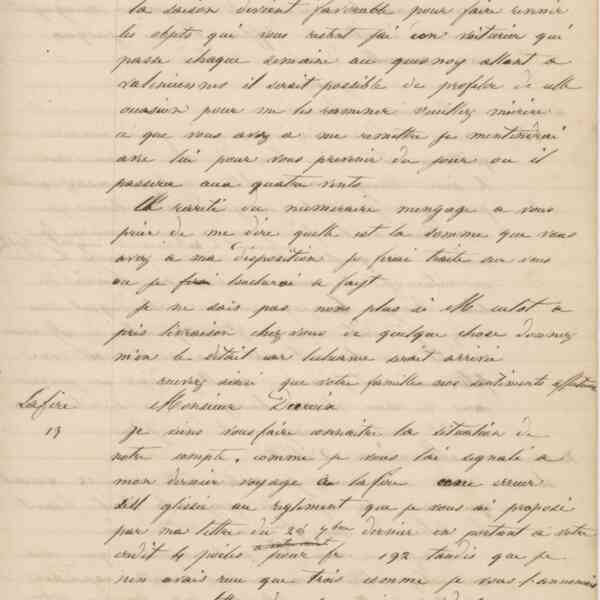 la saison devient favorable pour faire rentrer
les objets qui vous restent j'ai un voiturier qui
passe chaque semaine au quesnoy allant a
valenciennes il serait possible de profiter de cette
occasion pour me les ramener veuillez m'écrire
ce que vous avez a me remettre je m'entendrai
avec lui pour vous prevenir du jour ou il
passera aux quatre vents
La rareté du numeraire m'engage a vous
prier de me dire quelle est la somme que vous
avez a ma disposition je ferai traite sur vous
ou je toucherai a
je ne sais pas non plus si M culot a
pris livraison chez vous de quelque chose donnez
m'en le detail car
recevez ainsi que votre famille nos sentiments affectueux
Lafere Monsieur
13 je viens vous faire connaitre la situation de
notre compte, comme je vous l'ai signalé a
mon dernier voyage a lafere une erreur
s'est glissée au reglement que je vous ai proposé
par ma lettre du 26 7bre dernier en portant a votre
credit 4 poêles pour fr 192 tandis que je
n'en avais que trois comme je vous